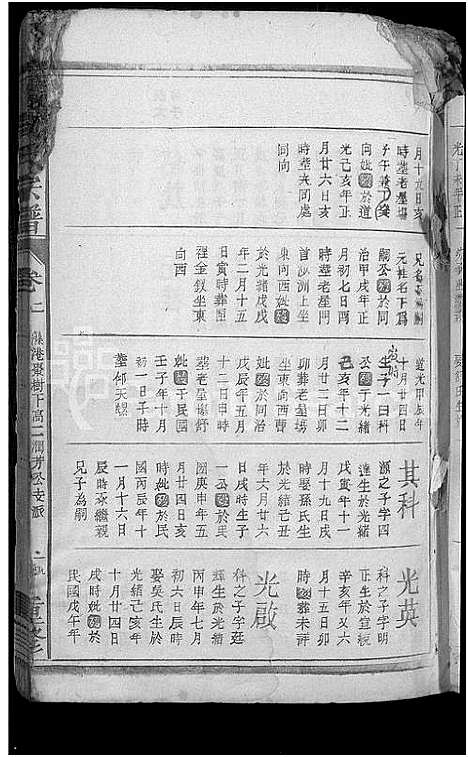 月十九日亥
時塟老屋塲
子午
向妣歿於道
光己亥年正
月廿六日亥
時塟大同處
同向
元姓名下爲
嗣公歿於同
治甲戌年正
月初七日酉
時塟老屋門
首洲上坐
東向西妣歿
於光緒戊戌
年二月十五
日寅時葬團
程金釵坐東
向西
道光甲辰年
十月廿四日
生子一曰科
公歿於光緒
己亥年十二
月廿二日卯
卯葬老屋塲
坐東向西曹
妣歿於同治
戊辰年五月
十二日申時
塟老屋塲
妣歿於民國
壬子年十月
初一日子時
塟天螺
其科
源之子字四
達生於光緒
戊寅年十一
月十九日戌
時娶孫氏生
於光緒乙丑
年六月廿六
日戌時生子
一公歿於民
國庚申年五
月廿四日亥
時妣歿於民
國丙辰年十
一月十六日
辰時承繼親
兄子為嗣
光英
科之子字明
正生於宣統
辛亥年又六
月十五日卯
時歿葬未詳
光啟
科之子字廷
輝生於光緒
丙申年七月
初六日辰時
娶吳氏生於
光緒己亥年
十月廿四日
戌時妣歿於
民國戊午年
宗譜
卷
港聚樹下高二潤芳公支派
重修